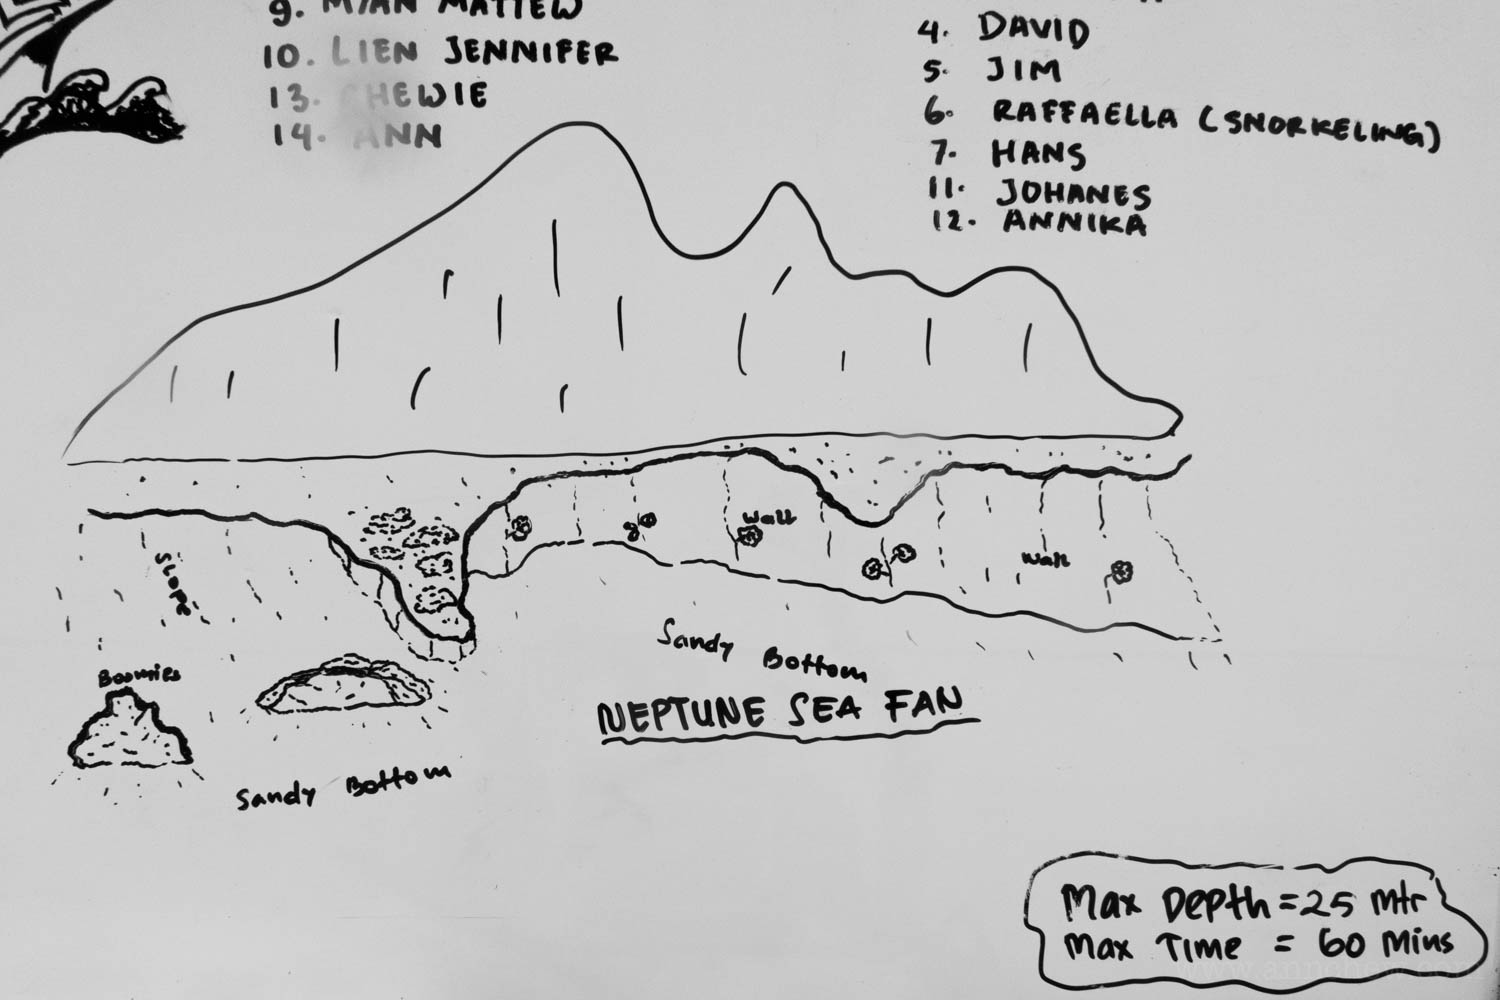 9. MYAN MATTEW
10. LIEN JENNIFER
13. CHEWIE
14. ANN
4. DAVID
5. JIM
6. RAFFAELLA (SNORKELING)
7. HANS
11. JOHANES
12. ANNIKA
Wall
Wall
SLOPE
Sandy Bottom
Boomies
NEPTUNE SEA FAN
Sandy Bottom
Max Depth = 25 mtr
Max Time = 60 Mins